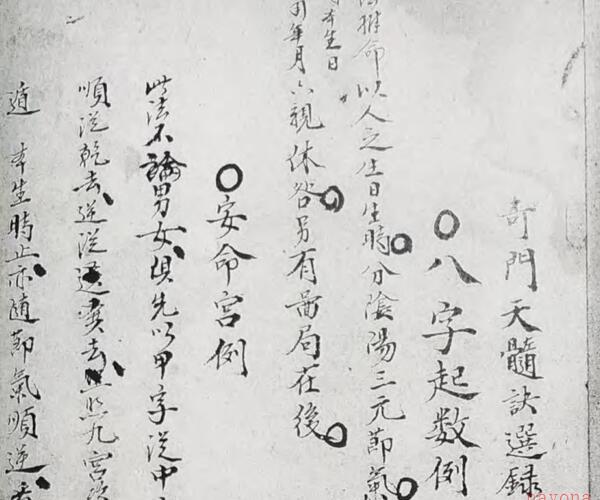 奇門天髓訣選録
○八字起数例
推命以人之生日生時分陰陽三元節氣
本生日
年月六親休咎另有啚局在後
○安命宫例
此法不論男女須先以甲字従中
順従乾去逆従巽去照九宫
遁 本生時止亦随節氣順逆